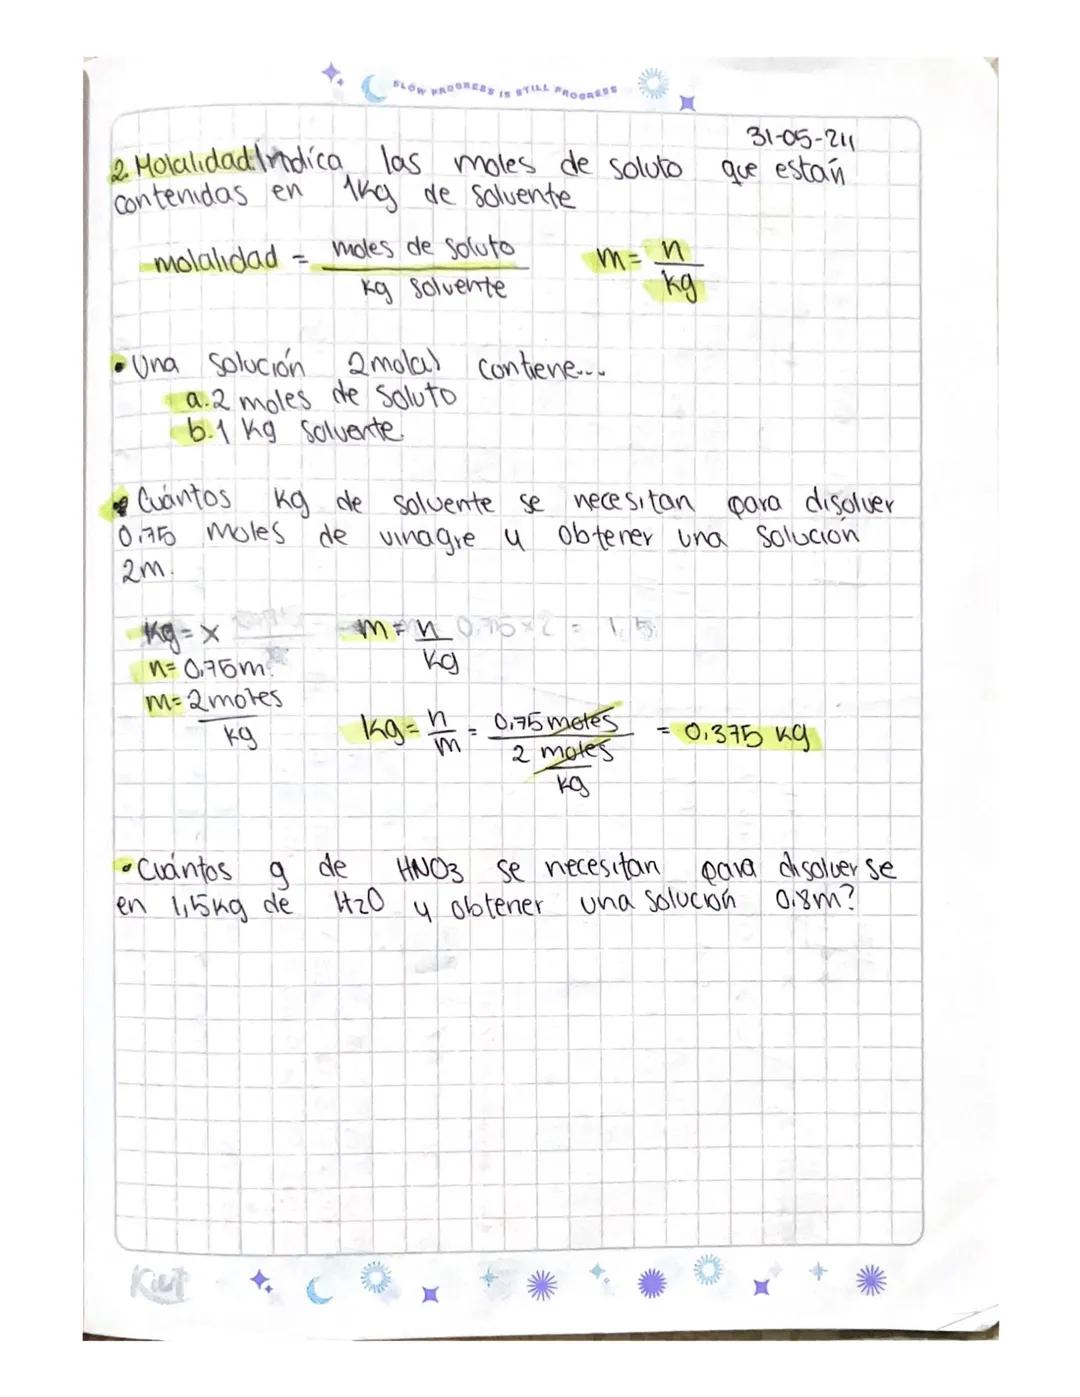 SLOW PROGRESS IS STILL PROGRESS
31-05-24
2. Molalidad: Indica las moles de soluto que están
contenidas en 1Kg de solvente
molalidad = moles de soluto
kg solvente
m = n
kg
• Una solución 2molal contiene...
a. 2 moles de soluto
b. 1 Kg solvente.
• Cuántos kg de solvente se necesitan para disolver
0,75 moles de vinagre y obtener una solución
2m.
kg = x
n = 0,75m.
m = 2moles
kg
m = n
kg
0,75 x 2 = 1,5
kg = n = 0,75 moles = 0,375 kg
m 2 moles
kg
• Cuántos g de HNO3 se necesitan para disolverse
en 1,5kg de H2O y obtener una solución 0,8m?
Kiut